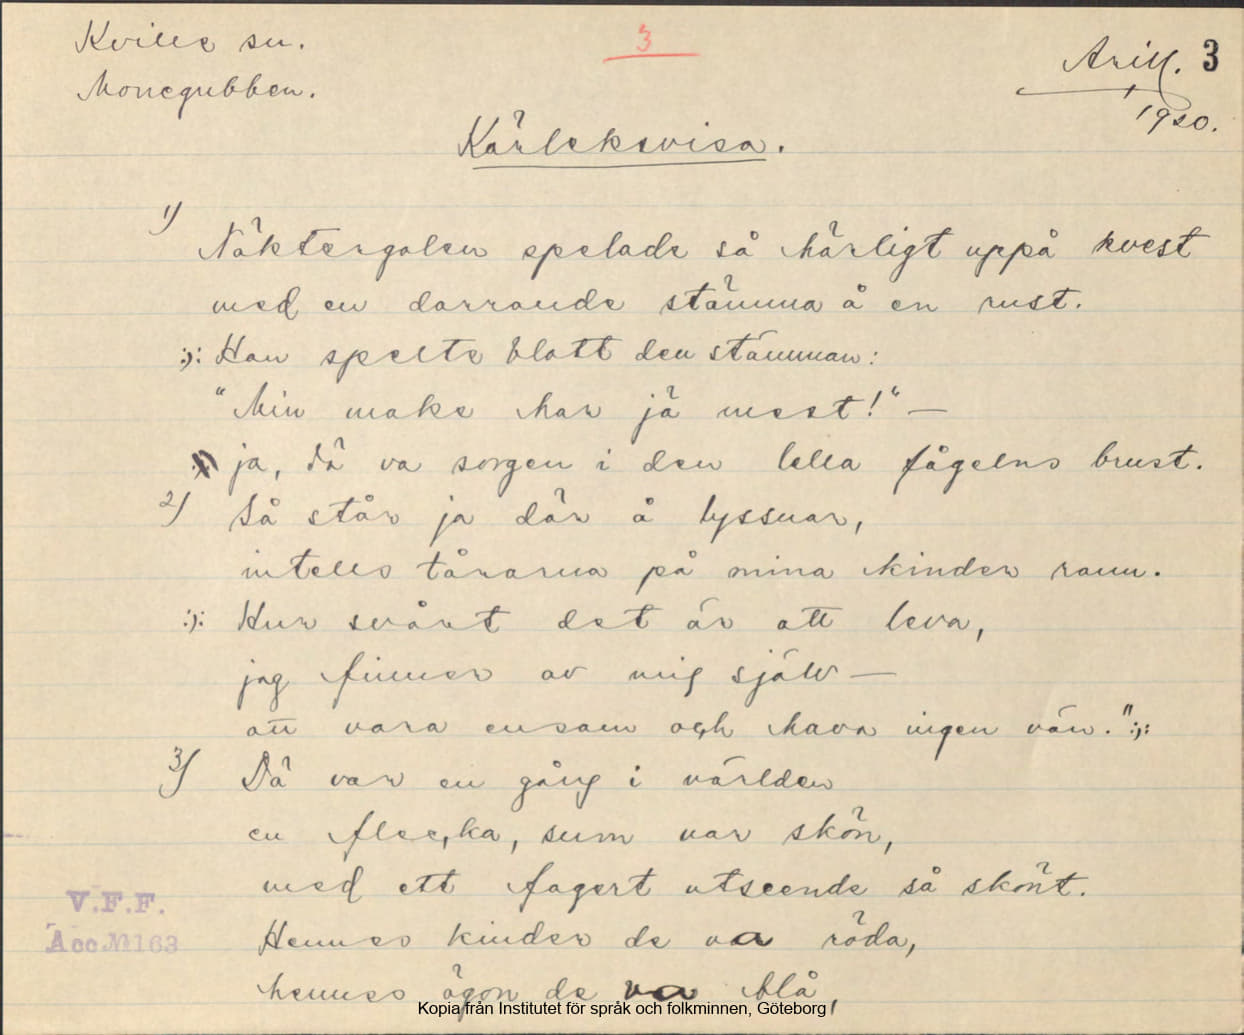 Kville sn.
3
Arill. 3
Monegubben.
1920.
Kärleksvisa.
1) Näktergalen spelade så härligt uppå kvest
med en darrande stämma å en rust.
:,: Han spelte blott den stämman:
"Min make har jä mest!" —
ja, dä va sorgen i den lella fågelns brust.
2) Så står ja där å lyssnar,
intells tårarna på mina kinder rann.
:,: Hur svårt det är att leva,
jag finner av mig själv —
att vara ensam och hava ingen vän." :,:
3) Dä var en gång i världen
en flecka, sum var skön,
med ett fagert utseende så skönt.
Hennes kinder de va röda,
hennes ögon de va blå,
V.F.F.
Acc. № 163
Kopia från Institutet för språk och folkminnen, Göteborg